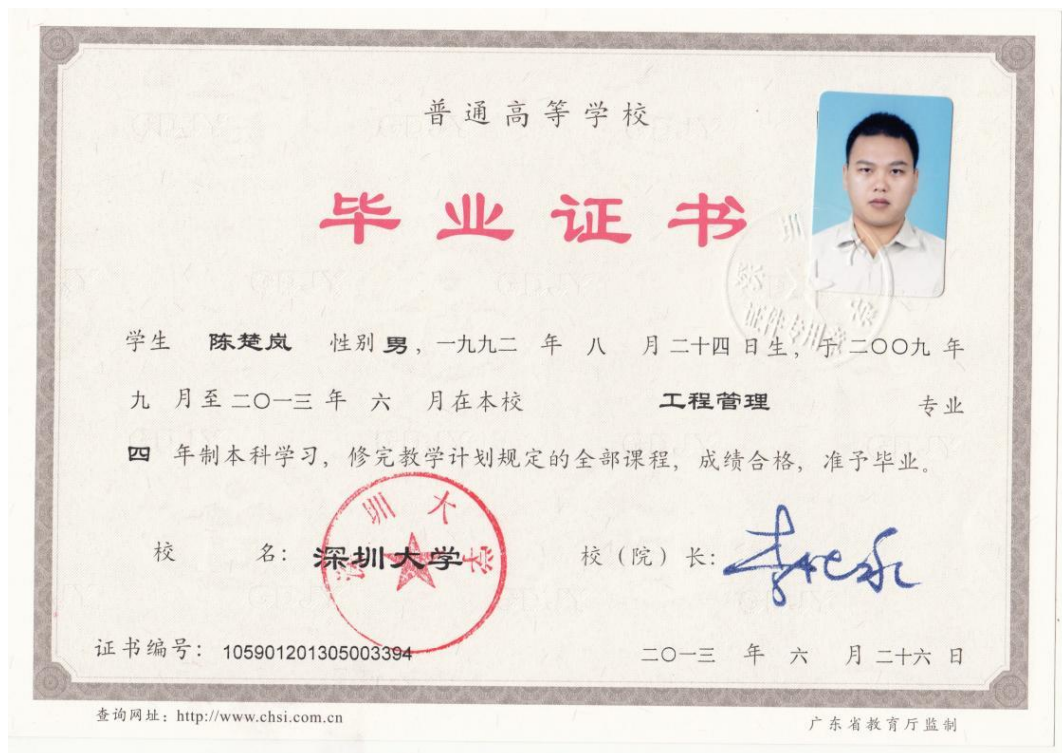 普通高等学校
毕业证书
学生 陈楚岚 性别 男，一九九二 年 八 月 二十四 日生，于 二〇〇九 年
九 月至 二〇一三 年 六 月在本校 工程管理 专业
四 年制本科学习，修完教学计划规定的全部课程，成绩合格，准予毕业。
深圳大学
校 名：深圳大学 校（院）长：
证书编号：105901201305003394 二〇一三 年 六 月 二十六 日
查询网址：http://www.chsi.com.cn 广东省教育厅监制